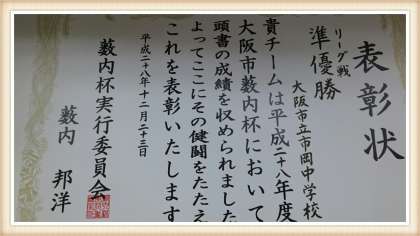 表彰状
リーグ戦
準優勝
大阪市立市岡中学校
貴チームは平成二十八年度
大阪市薮内杯において
頭書の成績を収められました
よってここにその健闘をたたえ
これを表彰いたします
平成二十八年十二月二十三日
薮内杯実行委員会
薮内 邦洋